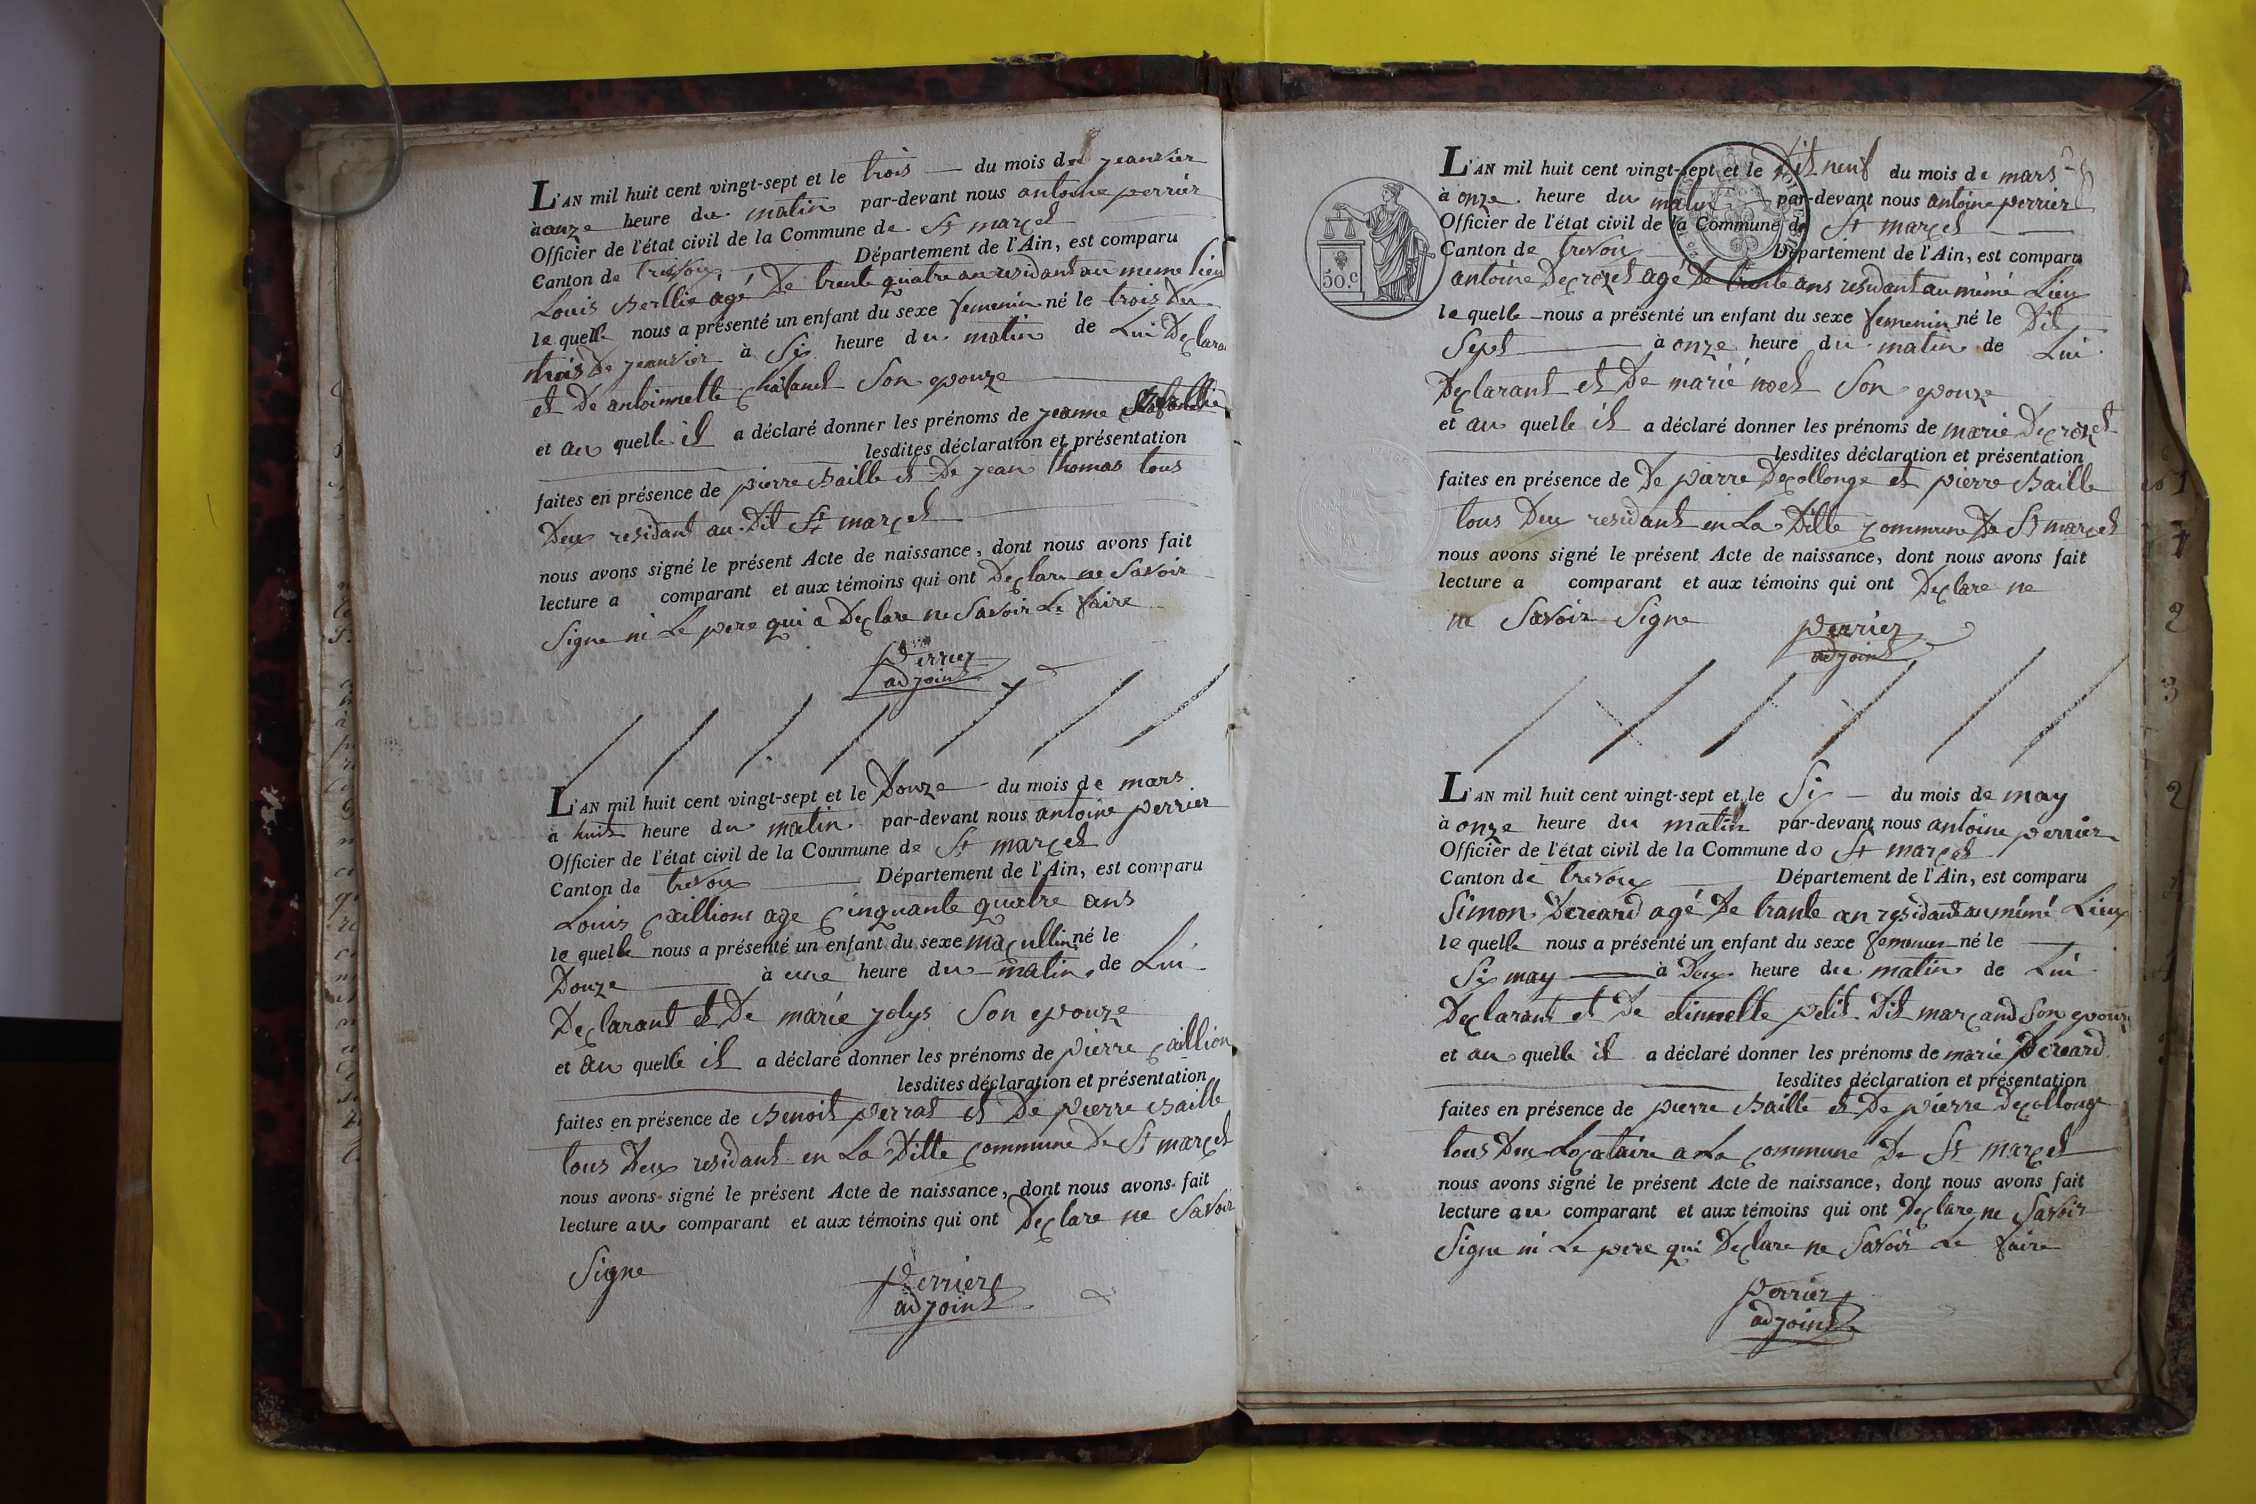 L'AN mil huit cent vingt-sept et le trois du mois de jeanvier
à onze heure du matin par-devant nous antoine perrier
Officier de l'état civil de la Commune de St marcel
Canton de trevoux Département de l'Ain, est comparu
Louis Berllie agé De trente quatre an residant au meme lieu
le quelle nous a présenté un enfant du sexe femenin né le trois Du
trois De jeanvier à Six heure du matin de Lui Declarant
et De antoinnette chatanet Son epouze
et au quelle il a déclaré donner les prénoms de jeanne
lesdites déclaration et présentation
faites en présence de pierre Baille et De jean thomas tous
Deux residant au Dit St marcel
nous avons signé le présent Acte de naissance, dont nous avons fait
lecture a comparant et aux témoins qui ont Declare ne Savoir
Signe ni Le pere qui a Declare ne Savoir Le faire
Perrier
adjoint
L'AN mil huit cent vingt-sept et le Douze du mois de mars
à huit heure du matin par-devant nous antoine perrier
Officier de l'état civil de la Commune de St marcel
Canton de trevoux Département de l'Ain, est comparu
Louis Caillions age Cinquante quatre ans
le quelle nous a présenté un enfant du sexe mascullin né le
Douze à une heure du matin de Lui
Declarant et De marie jolys Son epouze
et au quelle il a déclaré donner les prénoms de pierre Caillion
lesdites déclaration et présentation
faites en présence de Benoit perrat et De pierre Baille
tous Deux residant en La Ditte Commune De St marcel
nous avons signé le présent Acte de naissance, dont nous avons fait
lecture au comparant et aux témoins qui ont Declare ne Savoir
Signe
Perrier
adjoint
L'AN mil huit cent vingt-sept et le Dit neuf du mois de mars
à onze heure du matin par-devant nous antoine perrier
Officier de l'état civil de la Commune de St marcel
Canton de trevoux Département de l'Ain, est comparu
antoine Decrozet agé De trente ans residant au mémé Lieu
le quelle nous a présenté un enfant du sexe femenin né le Dit
Sept à onze heure du matin de Lui
Declarant et De marié noel Son epouze
et au quelle il a déclaré donner les prénoms de marie Decrozet
lesdites déclaration et présentation
faites en présence de De pierre Decollonge et pierre Baille
tous Deux residant en La Ditte Commune De St marcel
nous avons signé le présent Acte de naissance, dont nous avons fait
lecture a comparant et aux témoins qui ont Declare ne
ne Savoir Signe
Perrier
adjoint
50 c
L'AN mil huit cent vingt-sept et le Six du mois de may
à onze heure du matin par-devant nous antoine perrier
Officier de l'état civil de la Commune de St marcel
Canton de trevoux Département de l'Ain, est comparu
Simon Dereard agé De trante an residant au mémé Lieux
le quelle nous a présenté un enfant du sexe femenin né le
Six may à Deux heure du matin de Lui
Declarant et De etinnette petit Dit marcand Son epouze
et au quelle il a déclaré donner les prénoms de marie Dereard
lesdites déclaration et présentation
faites en présence de pierre Baille et De pierre Decollonge
tous Deux Locataire a La Commune De St marcel
nous avons signé le présent Acte de naissance, dont nous avons fait
lecture au comparant et aux témoins qui ont Declare ne Savoir
Signe ni Le pere qui Declare ne Savoir Le faire
Perrier
adjoint